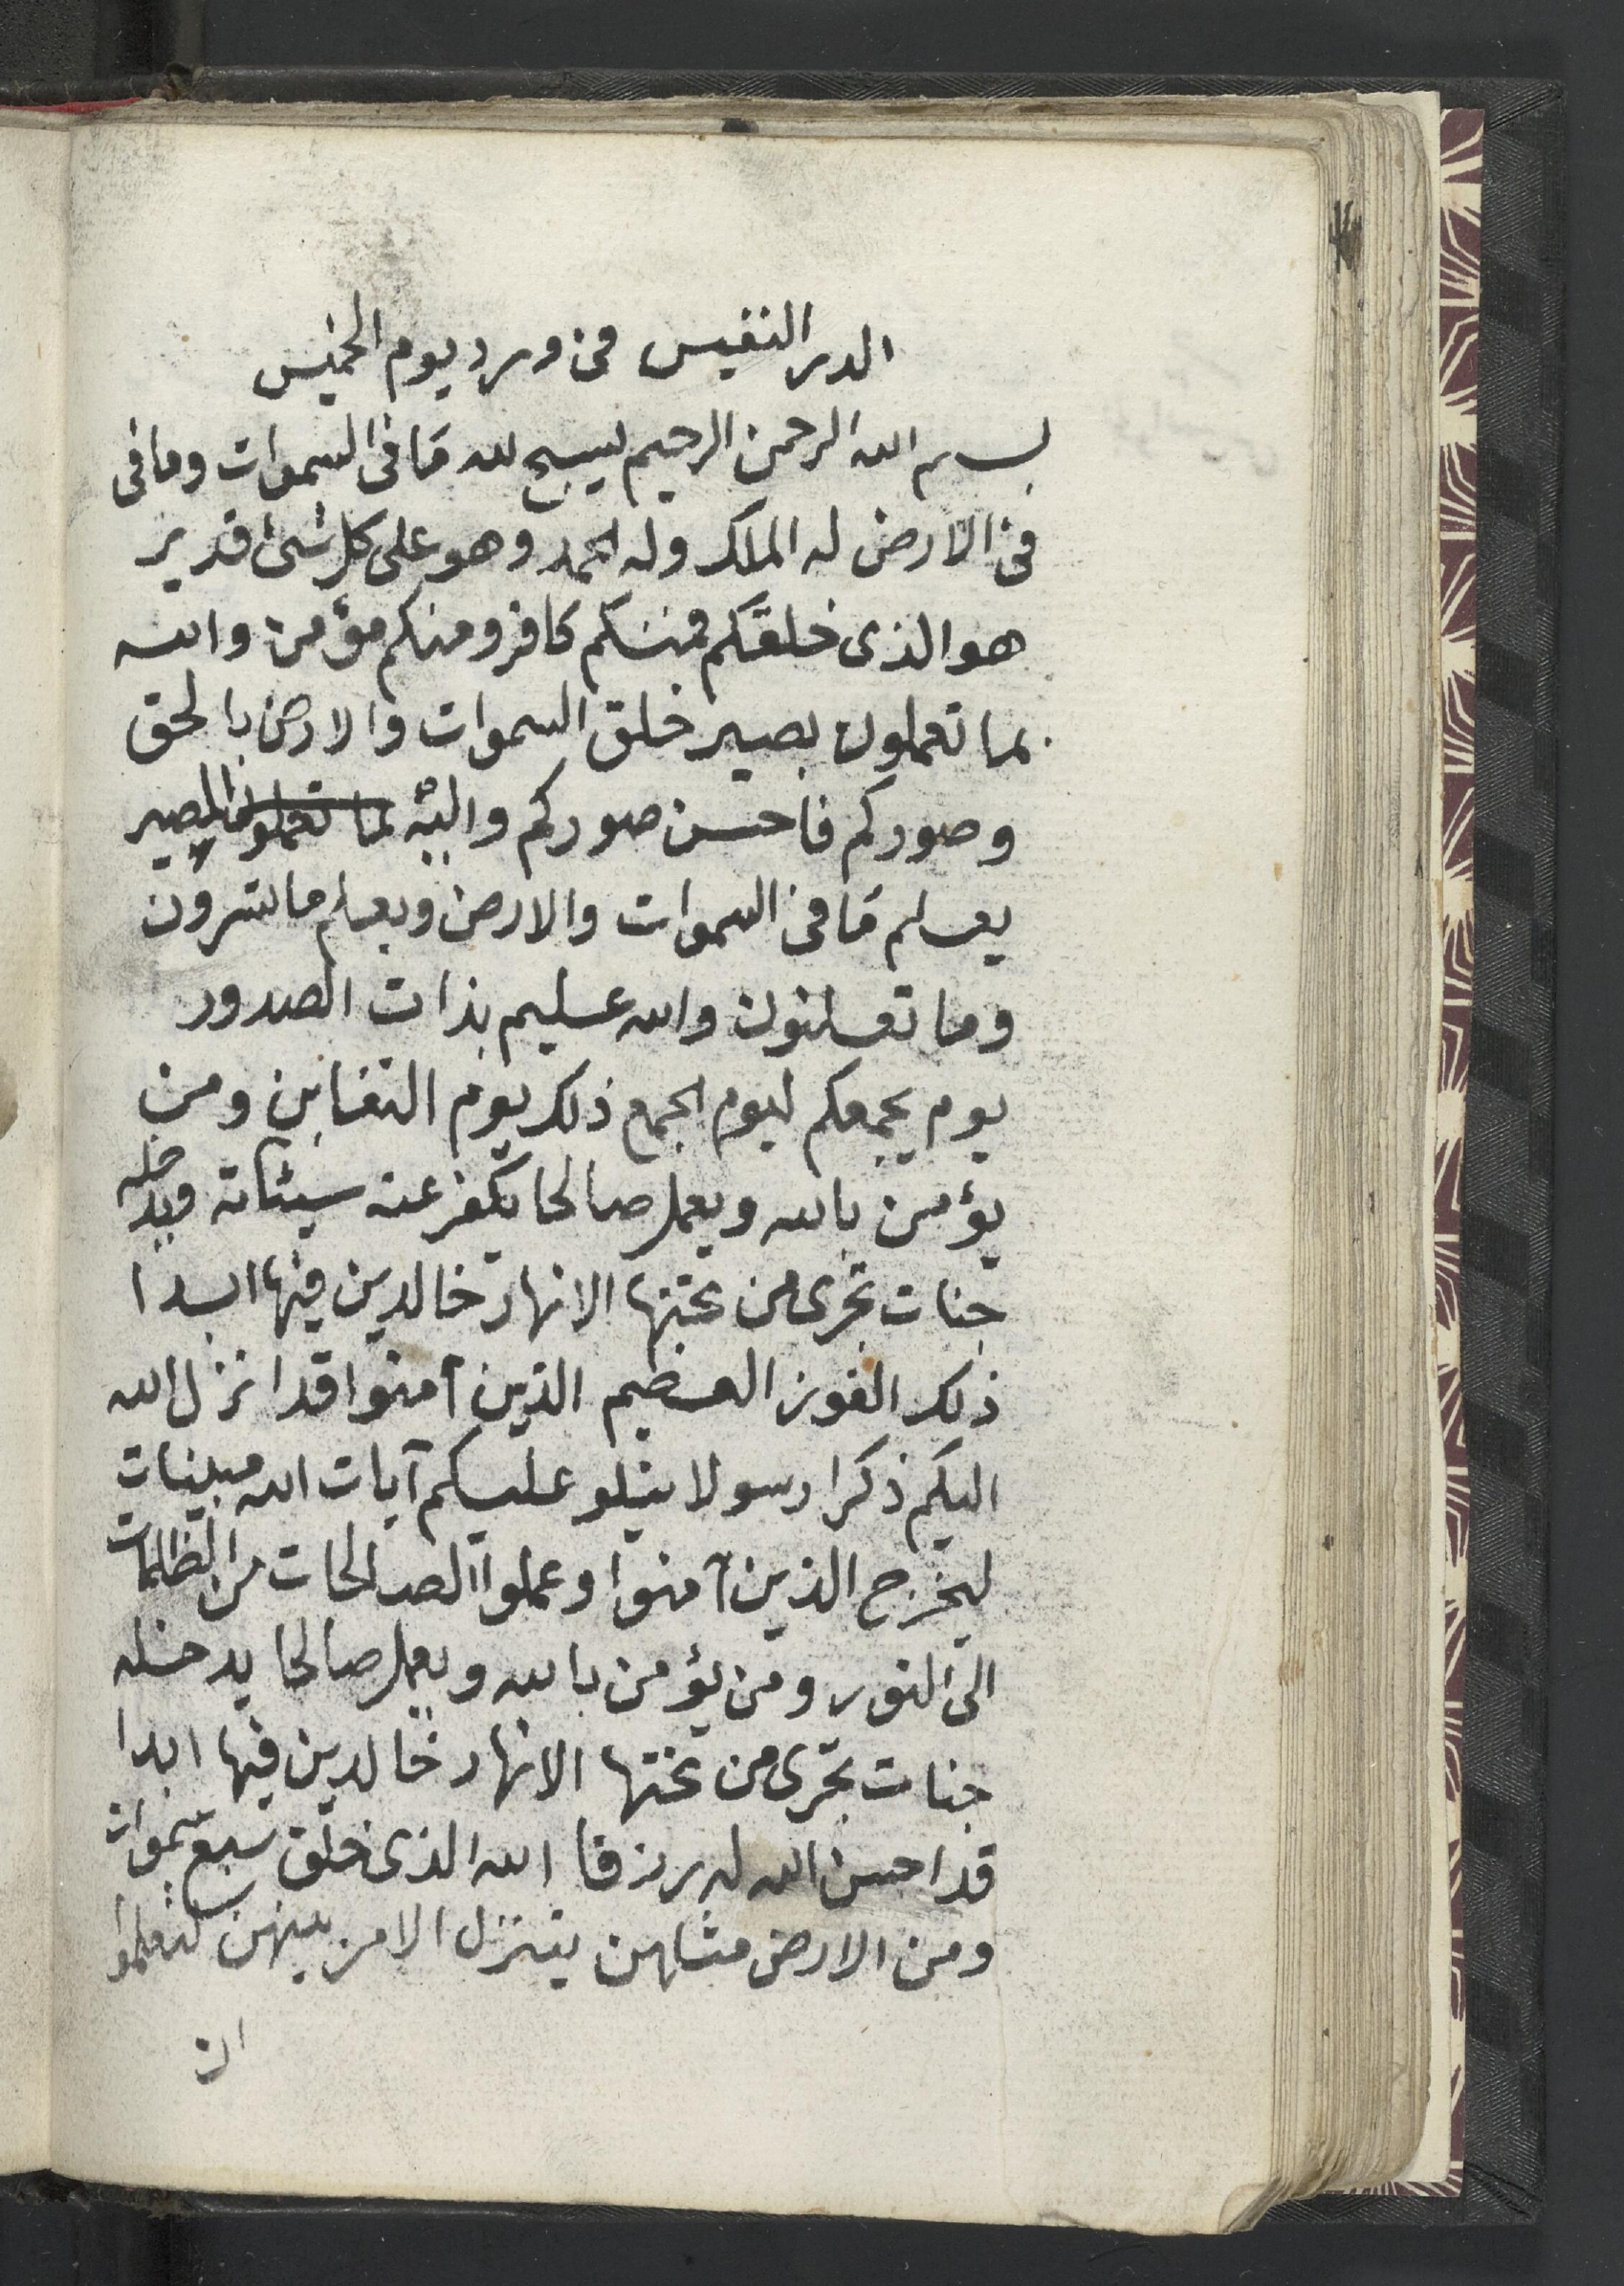 الدر النفيس فى ورد يوم الخميس
بسم الله الرحمن الرحيم يسبح لله ما فى السموات وما فى
فى الارض له الملك وله الحمد وهو على كل شئ قدير
هو الذى خلقكم فمنكم كافر ومنكم مؤمن والله
بما تعملون بصير خلق السموات والارض بالحق
وصوركم فاحسن صوركم واليه بما تعملون المصير
يعلم ما فى السموات والارض ويعلم ما تسرون
وما تعلنون والله عليم بذات الصدور
يوم يجمعكم ليوم الجمع ذلك يوم التغابن ومن
يؤمن بالله ويعمل صالحا يكفر عنه سيئاته ويدخله
جنات تجرى من تحتها الانهار خالدين فيها ابدا
ذلك الفوز العظيم الذين آمنوا قد انزل الله
اليكم ذكرا رسولا يتلو عليكم آيات الله مبينات
ليخرج الذين آمنوا وعملوا الصالحات من الظلمات
الى النور ومن يؤمن بالله ويعمل صالحا يدخله
جنات تجرى من تحتها الانهار خالدين فيها ابدا
قد احسن الله له رزقا الله الذى خلق سبع سموات
ومن الارض مثلهن يتنزل الامر بينهن لتعلموا
ان